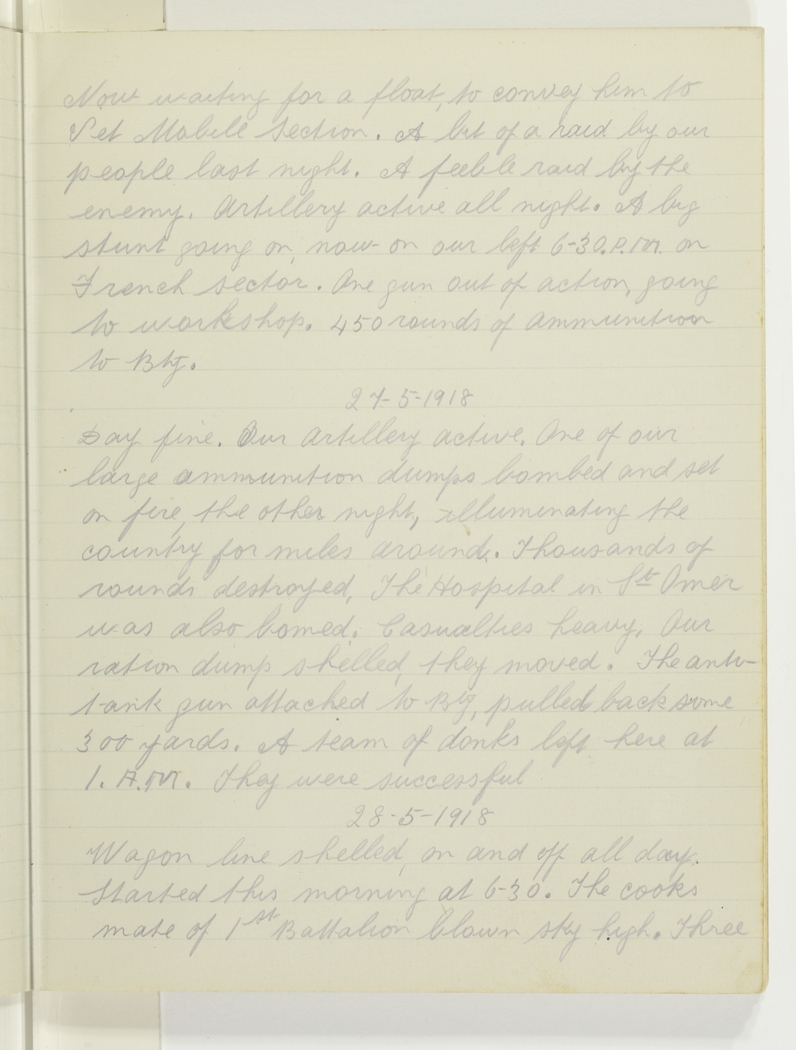 Now waiting for a float, to convey him to
Vet Mobile Section. A bit of a raid by our
people last night. A feeble raid by the
enemy. Artillery active all night. A big
stunt going on, now on our left 6-30.P.M. on
French sector. One gun out of action, going
to workshop. 450 rounds of ammunition
to Bty.
27-5-1918
Day fine. Our artillery active. One of our
large ammunition dumps bombed and set
on fire, the other night, illuminating the
country for miles around. Thousands of
rounds destroyed, The Hospital in St Omer
was also bomed. Casualties heavy. Our
ration dump shelled, they moved. The anti-
tank gun attached to Bty, pulled back some
300 yards. A team of donks left here at
1. A.M. They were successful
28-5-1918
Wagon line shelled, on and off all day.
Started this morning at 6-30. The cooks
mate of 1st Battalion blown sky high. Three